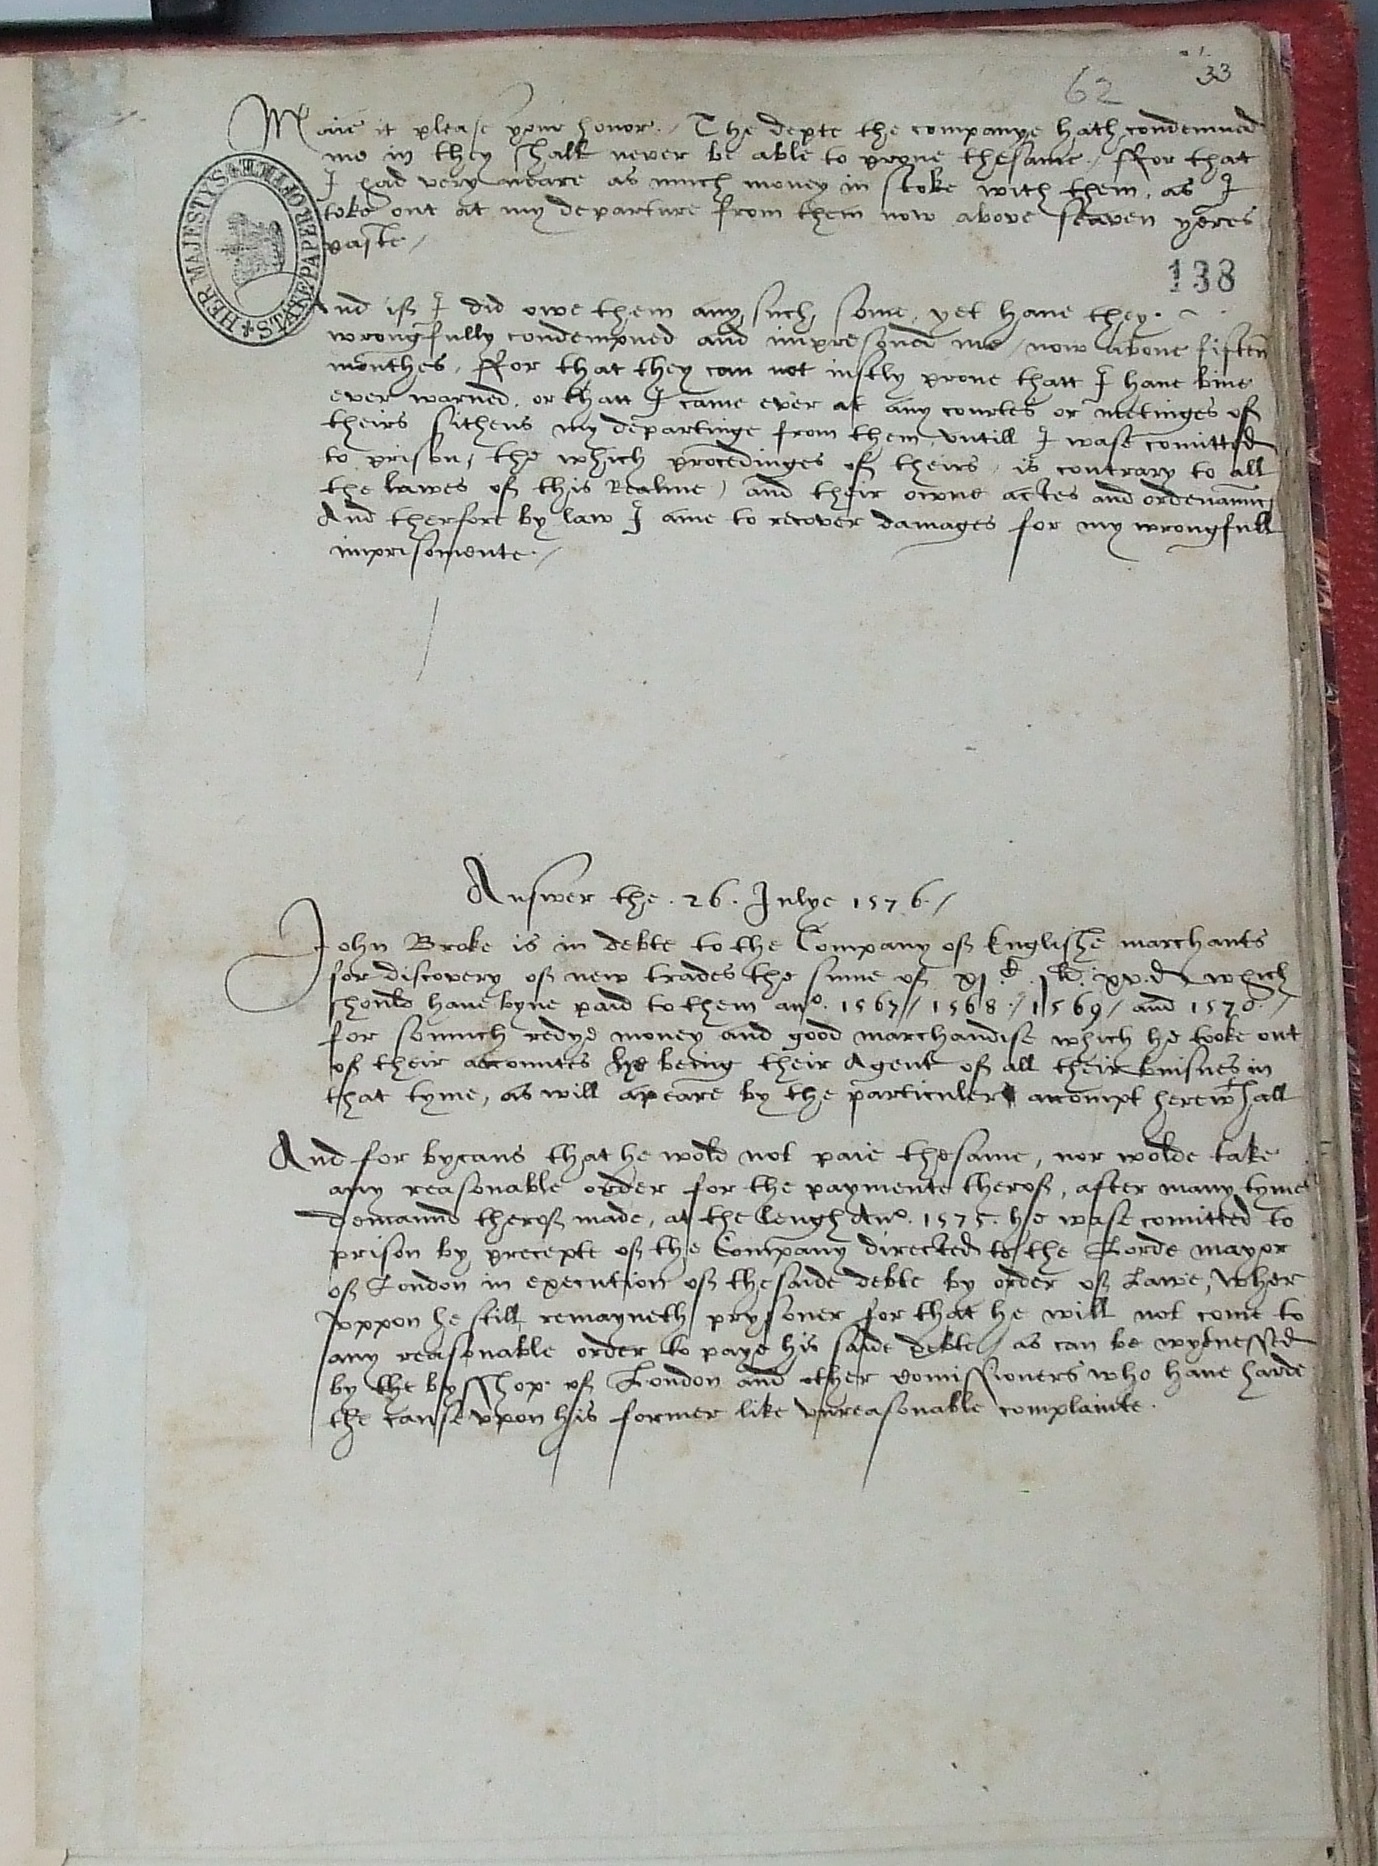 33
62
Maie it please your honor. / The depte the companye hath condemned
me in they shalle never be able to prove thesame. / ffor that
I had very neare as much money in stoke with them, as I
toke out at my departure from them now above seaven yeres
paste /
HER MAJESTYS STATE PAPER OFFICE
138
And if I did owe them any such some, yet have they.
wrongfully condempned and impresoned me / now above fiften
monthes, ffor that they can not iustly prove thatt I have bine
ever warned, or thatt I came ever at any courtes or metinges of
theirs sithens my departinge from them, vntill I wase comitted
to prison, the which procedinges of theirs, is contrary to all
the lawes of this Realme, and their owne actes and ordenaunces
And therfore by law I ame to recover damages for my wrongfull
imprisomente. /
Answer the . 26 . Julye 1576. /
John Broke is in debte to the Company of Englishe marchants
for discovery of new trades the sume of which
should have byne paid to them ano. 1567 / 1568 / 1569 / and 1570. /
for somuch redye money and good marchandise which he tooke out
of their accomutes he being their Agent of all their buisnes in
that tyme, as will apeare by the particuler accompt herewthall
And for bycaus that he wold not paie thesame, nor wolde take
any reasonable order for the paymente therof, after many tymes
demaund therof made, at the lengh Ano. 1575. he wase comitted to
prison by precepte of the Company directed to the Lorde mayor
of London in execution of thesaide debte by order of Lawe, wher
vppon he still remayneth prysoner for that he will not come to
any reasonable order to paye his saide debte / as can be wytnessed
by the bysshop of London and other Comissioners who have harde
the cause vpon his former like vnreasonable complainte.